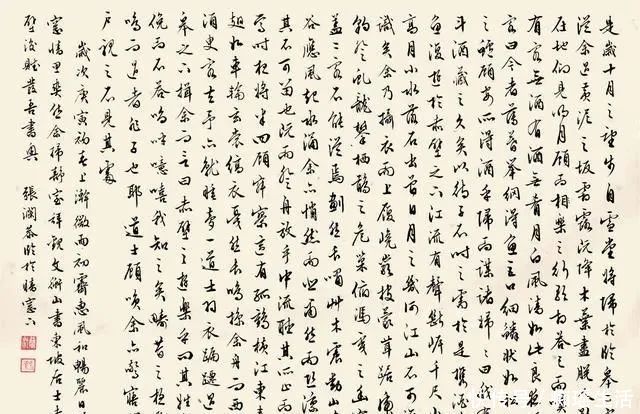 是歲十月之望步自雪堂將歸於臨皋
從余過黃泥之坂霜露既降木葉盡脫
在地仰見明月顧而相樂之行歌相答已而
有客無酒有酒無肴月白風清如此良夜
客曰今者薄暮舉網得魚巨口細鱗狀如
之鱸顧安所得酒乎歸而謀諸婦婦曰我
斗酒藏之久矣以待子不時之需於是攜酒
魚復遊於赤壁之下江流有聲斷岸千尺山
高月小水落石出曾日月之幾何江山不可
識矣余乃攝衣而上履巉巖披蒙茸踞
豹登虬龍攀棲鶻之危巢俯馮夷之幽宮
蓋二客不能從焉劃然長嘯草木震動山
谷應風起水涌余亦悄然而悲肅然而恐凜
其不可留也反而登舟放乎中流聽其所止而
焉時夜將半四顧寂寥適有孤鶴橫江東來
翅如車輪玄裳縞衣戛然長鳴掠余舟而西
須臾客去予亦就睡夢一道士羽衣蹁躚過
皋之下揖余而言曰赤壁之遊樂乎問其姓
俛而不答嗚呼噫嘻我知之矣疇昔之夜
鳴而過者非子也耶道士顧笑余亦驚寤
戶視之不見其處
歲次庚寅初春上澣微雨初霽惠風和暢麗日
窗情思
然余歸靜室詳觀文衡山書東坡居士
壁後賦發吾書興 張瀾恭臨於晴窗下